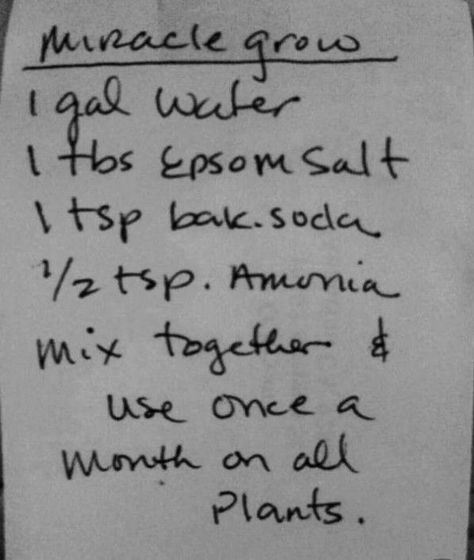 Miracle grow
1 gal water
1 tbs Epsom Salt
1 tsp bak.soda
1/2 tsp. Amonia
mix together &
use once a
month on all
Plants.